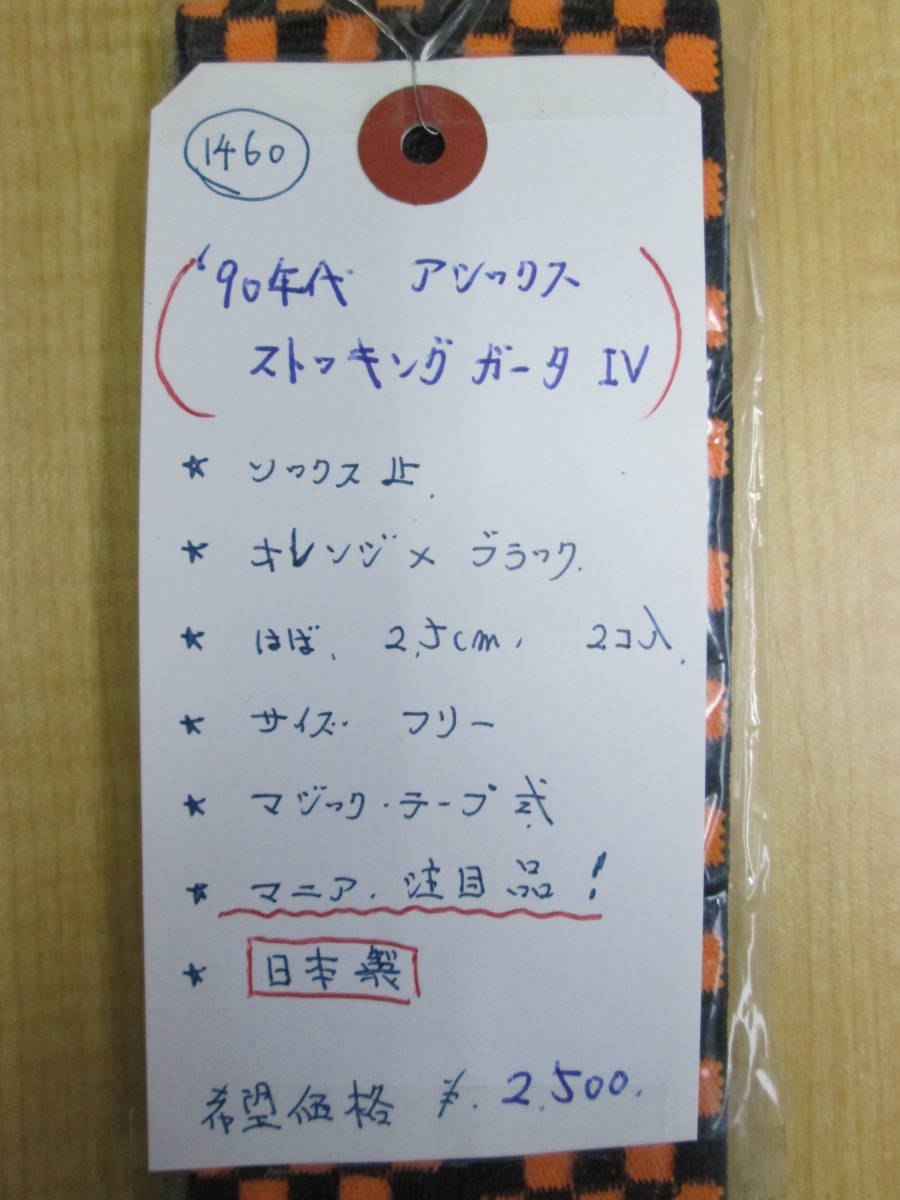 1460
'90年代 アシックス
ストッキング ガータ IV
★ ソックス止.
★ オレンジ × ブラック.
★ はば. 2.5cm, 2コ入.
★ サイズ フリー
★ マジック・テープ式
★ マニア.注目品!
★ 日本製
希望価格 ¥.2.500.